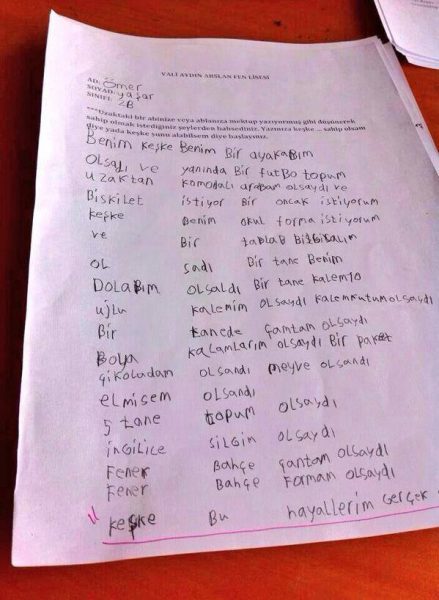 VALİ AYDIN ARSLAN FEN LİSESİ
AD: Ömer
SOYAD: yaşar
SINIFI: 2B
***Uzaktaki bir abinize veya ablanıza mektup yazıyormuş gibi düşünerek
sahip olmak istediğiniz şeylerden bahsediniz. Yazınıza keşke ... sahip olsam
diye yada keşke şunu alabilsem diye başlayınız.
Benim keşke Benim Bir ayakabım
Olsadı ve yanında Bir futbo topum
uzaktan komodalı arabam olsaydı ve
Biskilet istiyor Bir oncak istiyorum
keşke Benim okul forma istiyorum
ve Bir tablab Bilgisalım
OL sadı Bir tane Benim
DOLabım olsaldı Bir tane kalemlo
uJlu kalemim olsaydı kalemkutum olsaydı
Bir tanede çantam olsaydı
Boya kalamlarım olsaydı Bir paket
çikoladan olsandı meyve olsandı
elmisem olsandı
5 tane topum olsaydı
ingilice silgin olsaydı
Fener Bahçe çantam olsaydı
Fener Bahçe Formam olsaydı
keşke Bu hayallerim Gerçek